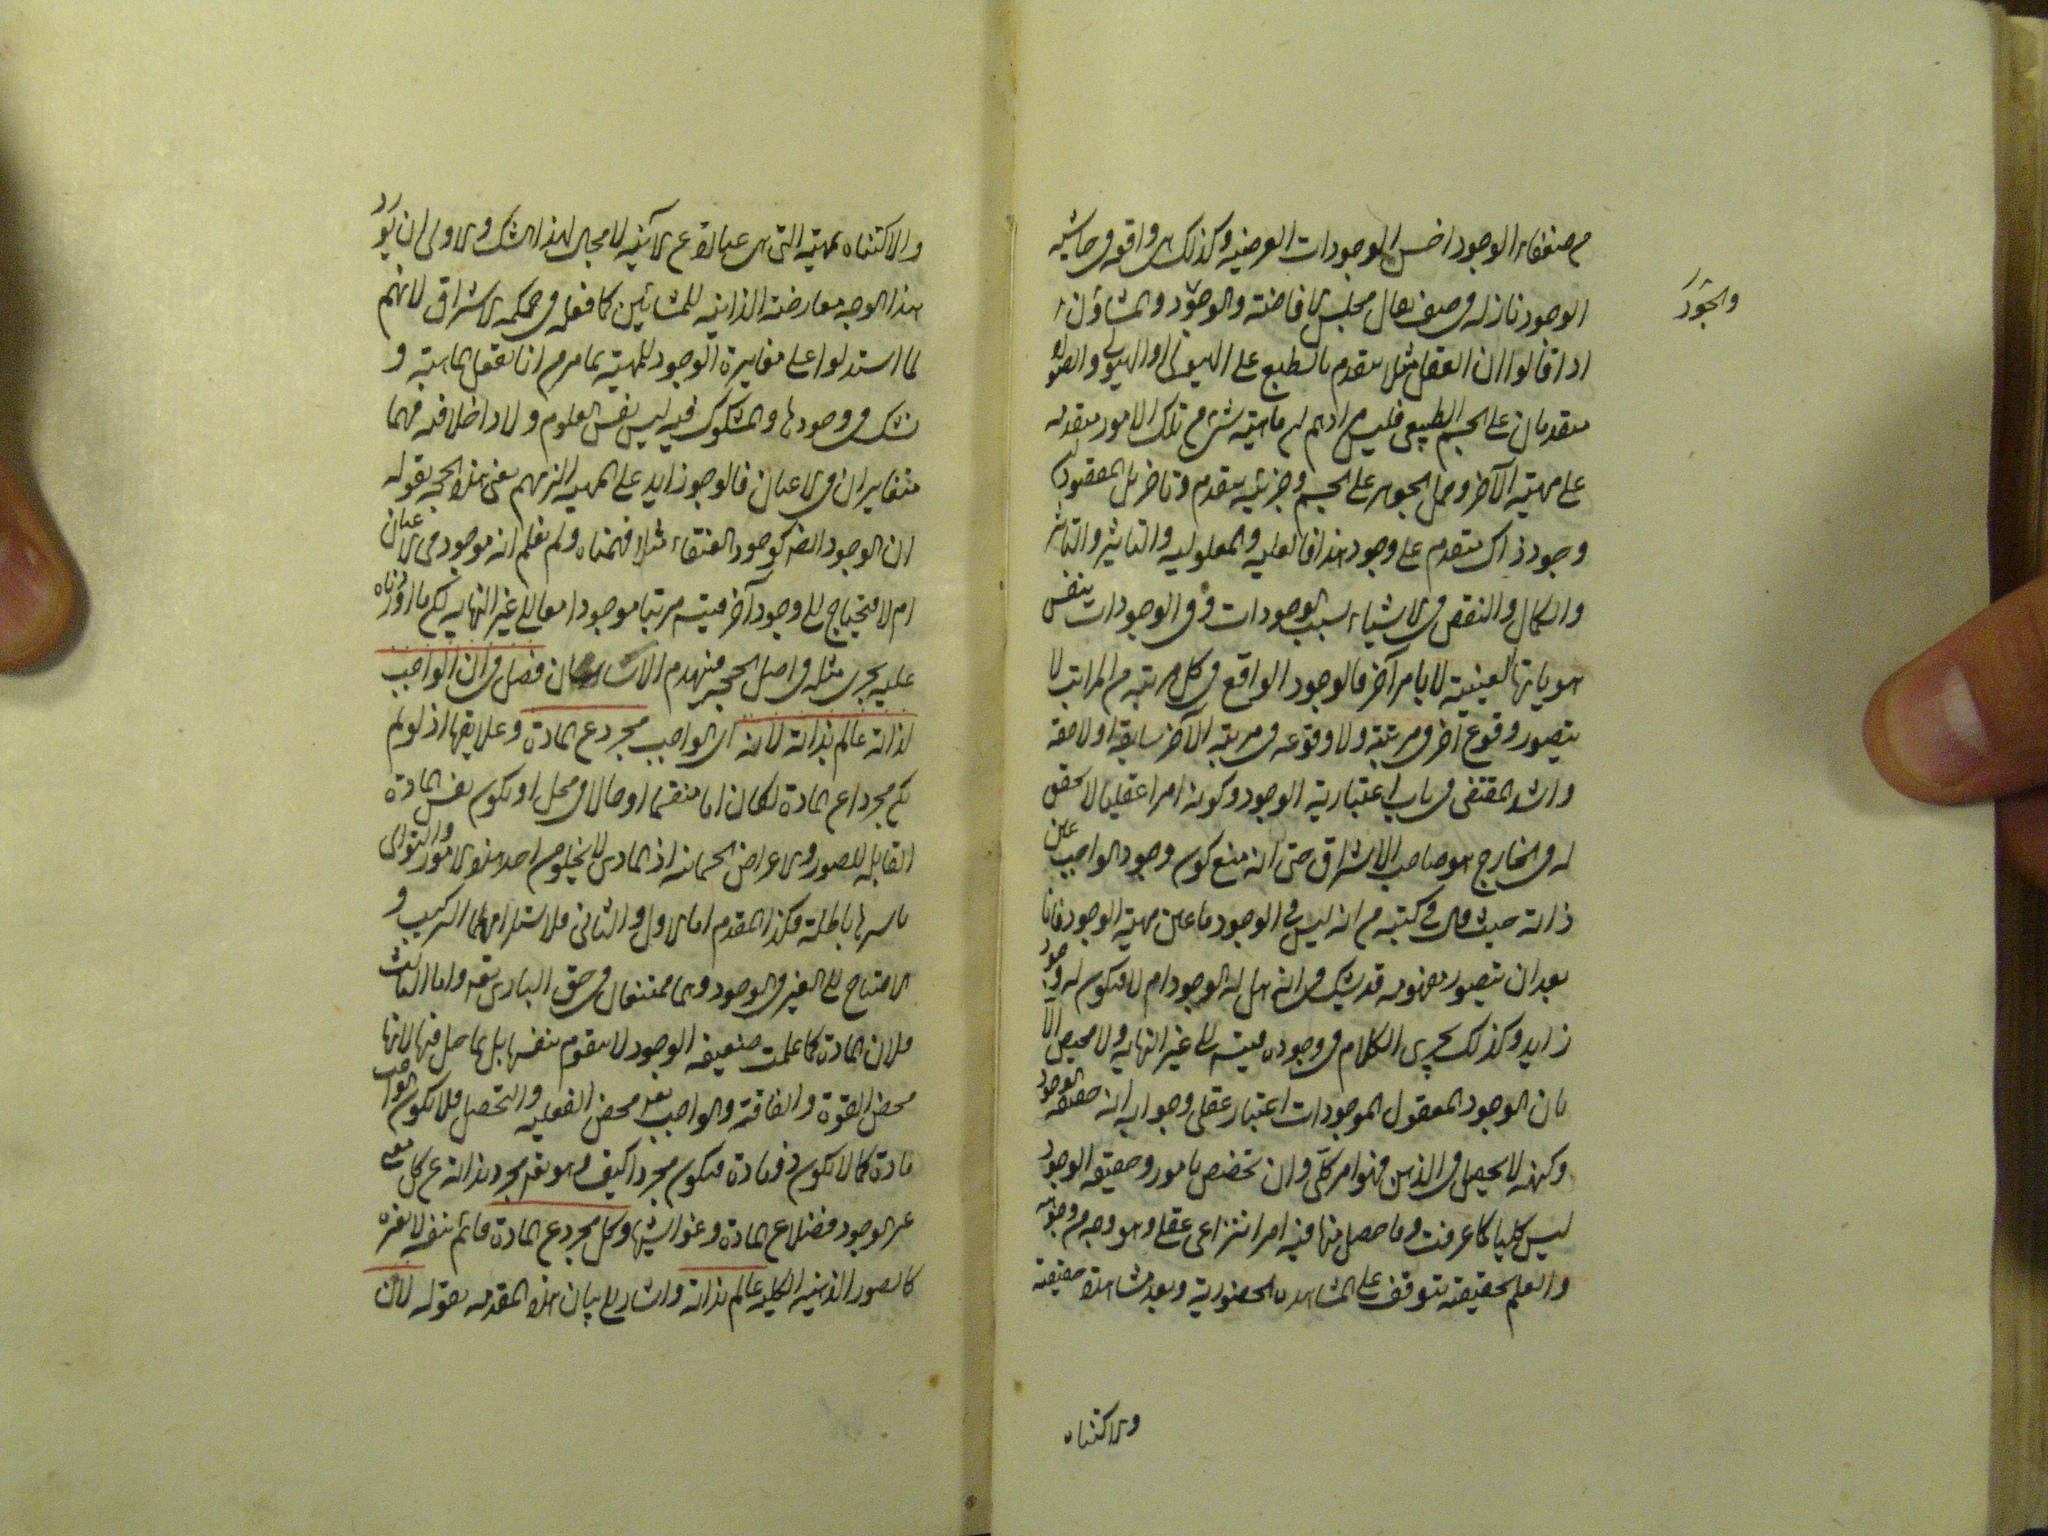 من صنفاء الوجود اخس الوجودات العرضية وكذلك هى واقعة فى حاشية
الوجود نازلة فى صف نعال مجلس الافاضة والوجود والمشاؤن
والجود
اذا قالوا ان العقل مثلا متقدم بالطبع على الهيولى او الهيولى والصورة
متقدمان على الجسم الطبيعى فليس مرادهم ان ماهية شئ من تلك الامور متقدمة
على مهية الآخر وحمل الجوهر على الجسم وجزئيه بتقدم وتاخر بل المقصود ان
وجود ذاك متقدم على وجود هذا فالعلية والمعلولية والتاثير والتاثر
والكمال والنقص فى الاشياء بسبب الوجودات وفى الوجودات بنفس
هوياتها العينية لا بامر آخر فالوجود الواقع فى كل مرتبة من المراتب لا
يتصور وقوع آخر فى مرتبته ولا وقوعه فى مرتبة الآخر سابقة او لاحقة
واشد المقتفى فى باب اعتبارية الوجود وكونه امرا عقليا لا تحقق
له فى الخارج هو صاحب الاشراق حتى انه منع كون وجود الواجب عين
ذاته حيث قال فى كتبه من انه ليس فى الوجود ما عين مهيته الوجود فانا
بعد ان نتصور مفهومه قد نشك فى انه هل له الوجود ام لا فيكون له وجود
زايد وكذلك يجرى الكلام فى وجوده فيتسلسل الى غير النهاية ولا محيص الا
بان الوجود المعقول للموجودات اعتبار عقلى وجوابه انه حقيقة الوجود
وكنهه لا يحصل فى الذهن فهو امر كلى وان تخصص بامور وحقيقة الوجود
ليس كليا كما عرفت وما حصل منها فيه امر انتزاعى عقلى وهو وجه من وجوهه
والعلم بحقيقته يتوقف على المشاهدة الحضورية وبعد مشاهدة حقيقته
والاكتناه
والاكتناه بمهيته التى هى عبارة عن الانية لا مجال لهذا الشك والاولى ان يورد
هذا الوجه معارضة الزامية للمشائين كما فعله فى حكمة الاشراق لانهم
لما استدلوا على مغايرة الوجود للمهية بما مر من انا نعقل الماهية و
نشك فى وجودها والمشكوك فيه ليس نفس المعلوم ولا داخلا فيه فهما
متغايران فى الاعيان فالوجود زايد على المهية الزمهم بعين هذه الحجة بقوله
ان الوجود ايضا كوجود العنقاء مثلا فهمناه ولم نعلم انه موجود فى الاعيان
ام لا فيحتاج الى وجود آخر فيتسلسل مرتبا موجودا معا الى غير النهاية لكن ما اوردناه
عليه يجرى مثله فى اصل الحجة فينهدم الاساسان فصل فى ان الواجب
لذاته عالم بذاته لانه اى الواجب مجرد عن المادة وعلايقها اذ لو لم
يكن مجردا عن المادة لكان اما منقسما او حالا فى محل او يكون نفس المادة
القابلة للصور والاعراض الجسمانية اذ المادى لا يخلو من احد هذه الامور والتوالى
باسرها باطلة فكذا المقدم اما الاول والثانى فلاستلزامهما التركيب و
الاحتياج الى الغير فى الوجود وهما ممتنعان فى حق البارى تعالى واما الثالث
فلان المادة كما علمت ضعيفة الوجود لا تتقوم بنفسها بل بما حل فيها لانها
محض القوة والفاقة والواجب تعالى محض الفعلية والتحصل فلا يكون الواجب
مادة كما لا يكون فى مادة فيكون مجردا كيف وهو تعالى مجرد بذاته عن كل معنى
غير الوجود فضلا عن المادة وغواشيها وكل مجرد عن المادة قائم بنفسه لا بغيره
كالصور الذهنية الكلية عالم بذاته واشار الى بيان هذه المقدمة بقوله لان